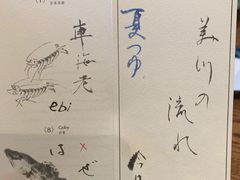 (7)
車海老
ebi
(8) Goby
は
ぜ
夏つゆ
今日
美川の
流れ